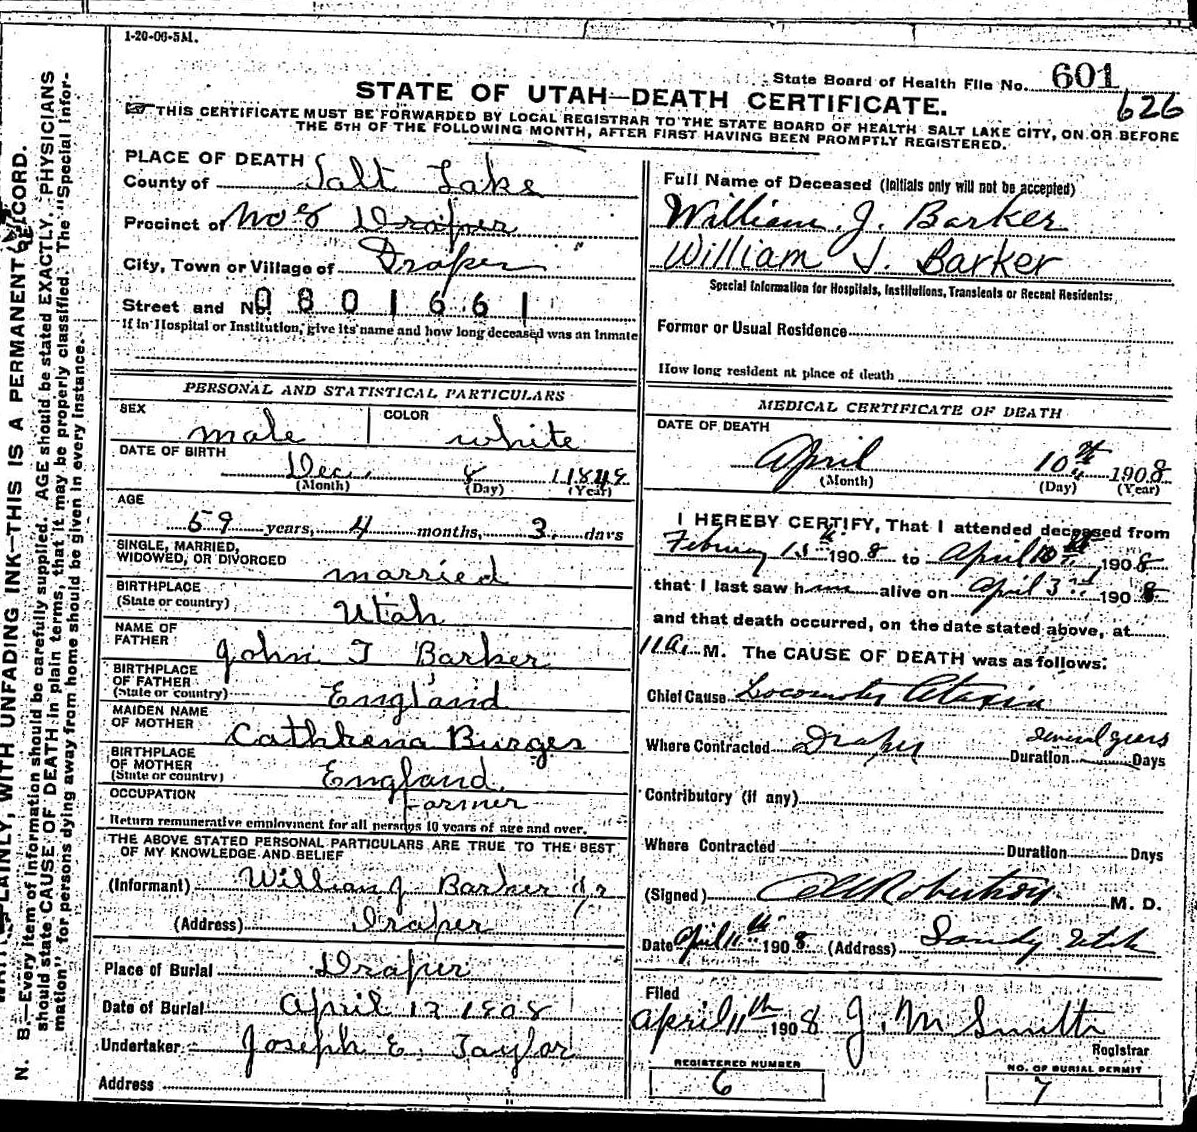 1-20-06-5M.
State Board of Health File No. 601
626
STATE OF UTAH—DEATH CERTIFICATE.
THIS CERTIFICATE MUST BE FORWARDED BY LOCAL REGISTRAR TO THE STATE BOARD OF HEALTH SALT LAKE CITY, ON OR BEFORE
THE 5TH OF THE FOLLOWING MONTH, AFTER FIRST HAVING BEEN PROMPTLY REGISTERED.
PLACE OF DEATH
County of Salt Lake
Precinct of No 8 Draper
City, Town or Village of Draper "
Street and No. 0801661
If in Hospital or Institution, give its name and how long deceased was an Inmate
PERSONAL AND STATISTICAL PARTICULARS
SEX male COLOR white
DATE OF BIRTH
Dec 8 1848
(Month) (Day) (Year)
AGE
59 years, 4 months, 3 days
SINGLE, MARRIED,
WIDOWED, OR DIVORCED married
BIRTHPLACE
(State or country) Utah
NAME OF
FATHER John T Barker
BIRTHPLACE
OF FATHER
(State or country) England
MAIDEN NAME
OF MOTHER Cathrena Burges
BIRTHPLACE
OF MOTHER
(State or country) England
OCCUPATION farmer
Return remunerative employment for all persons 10 years of age and over.
THE ABOVE STATED PERSONAL PARTICULARS ARE TRUE TO THE BEST
OF MY KNOWLEDGE AND BELIEF
(Informant) William J Barker Jr
(Address) Draper
Place of Burial Draper
Date of Burial April 12 1908
Undertaker Joseph E. Taylor
Address
Full Name of Deceased (Initials only will not be accepted)
William J. Barker
William J. Barker
Special Information for Hospitals, Institutions, Transients or Recent Residents:
Former or Usual Residence
How long resident at place of death
MEDICAL CERTIFICATE OF DEATH
DATE OF DEATH
April 10th 1908
(Month) (Day) (Year)
I HEREBY CERTIFY, That I attended deceased from
February 15th 1908 to April 10th 1908
that I last saw him alive on April 3rd 1908
and that death occurred, on the date stated above, at
11 a. M. The CAUSE OF DEATH was as follows:
Chief Cause Locomotor Ataxia
Where Contracted Draper Duration several years Days
Contributory (if any)
Where Contracted Duration Days
(Signed) Robertson M. D.
Date April 11th 1908 (Address) Sandy Utah
Filed
April 11th 1908 J. M Smith
Registrar
REGISTERED NUMBER
6
NO. OF BURIAL PERMIT
7
PLAINLY, WITH UNFADING INK—THIS IS A PERMANENT RECORD.
N. B.—Every item of information should be carefully supplied. AGE should be stated EXACTLY. PHYSICIANS
should state CAUSE OF DEATH in plain terms, that it may be properly classified. The "Special Infor-
mation" for persons dying away from home should be given in every instance.